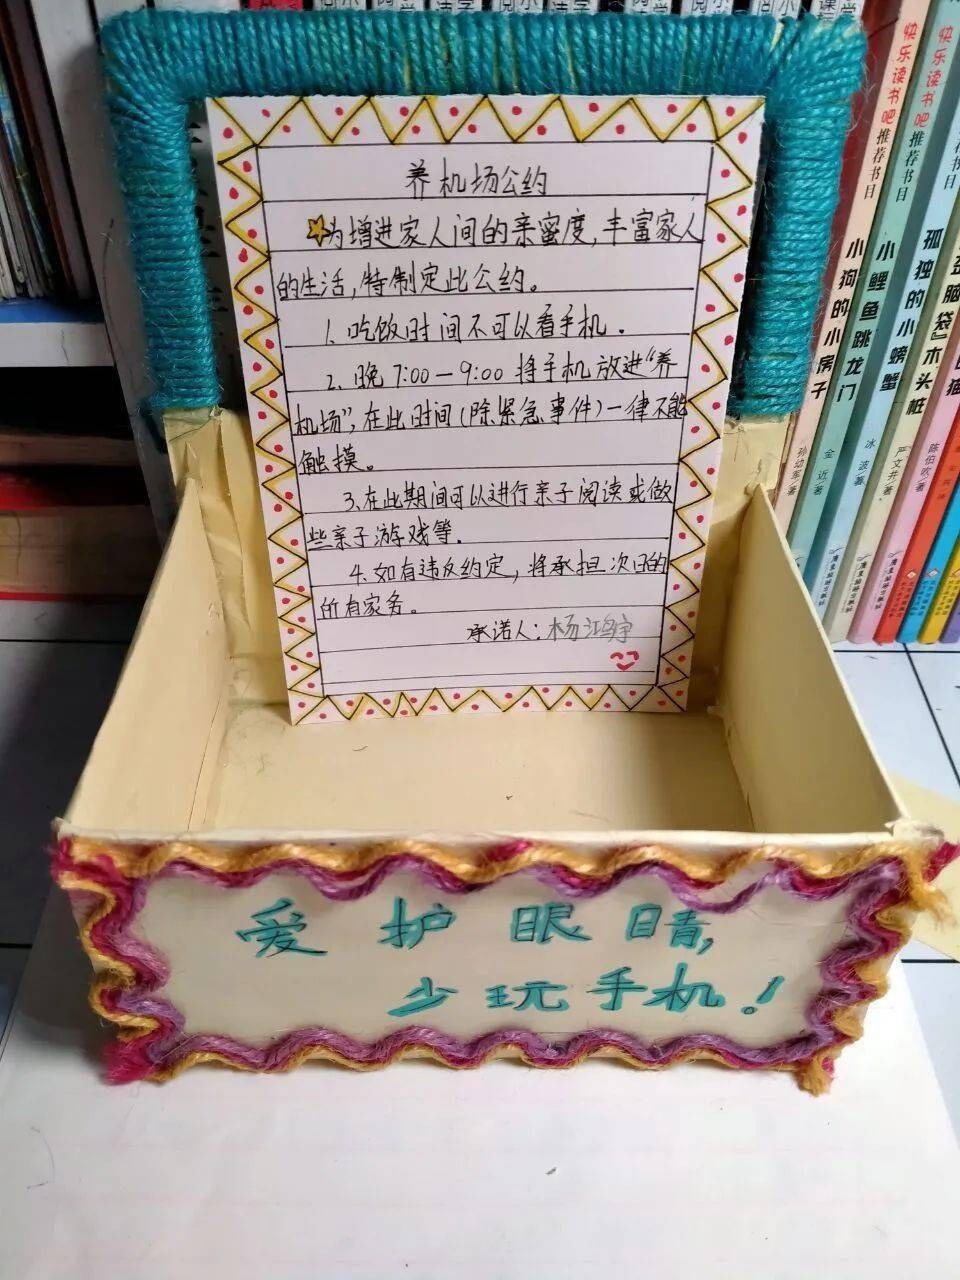 养机场公约
为增进家人间的亲蜜度,丰富家人
的生活,特制定此公约。
1. 吃饭时间不可以看手机。
2. 晚7:00—9:00 将手机放进“养
机场”,在此时间(除紧急事件)一律不能
触摸。
3.在此期间可以进行亲子阅读或做
些亲子游戏等.
4.如有违反约定,将承担次日的
所有家务。
承诺人:杨鸿宇
爱护眼睛,
少玩手机!
快乐读书吧 推荐书目
小狗的小房子
孙幼军/著
快乐读书吧 推荐书目
小鲤鱼跳龙门
金近/著
孤独的小螃蟹
冰波/著
“歪脑袋”木头桩
严文井/著
陈伯吹/著